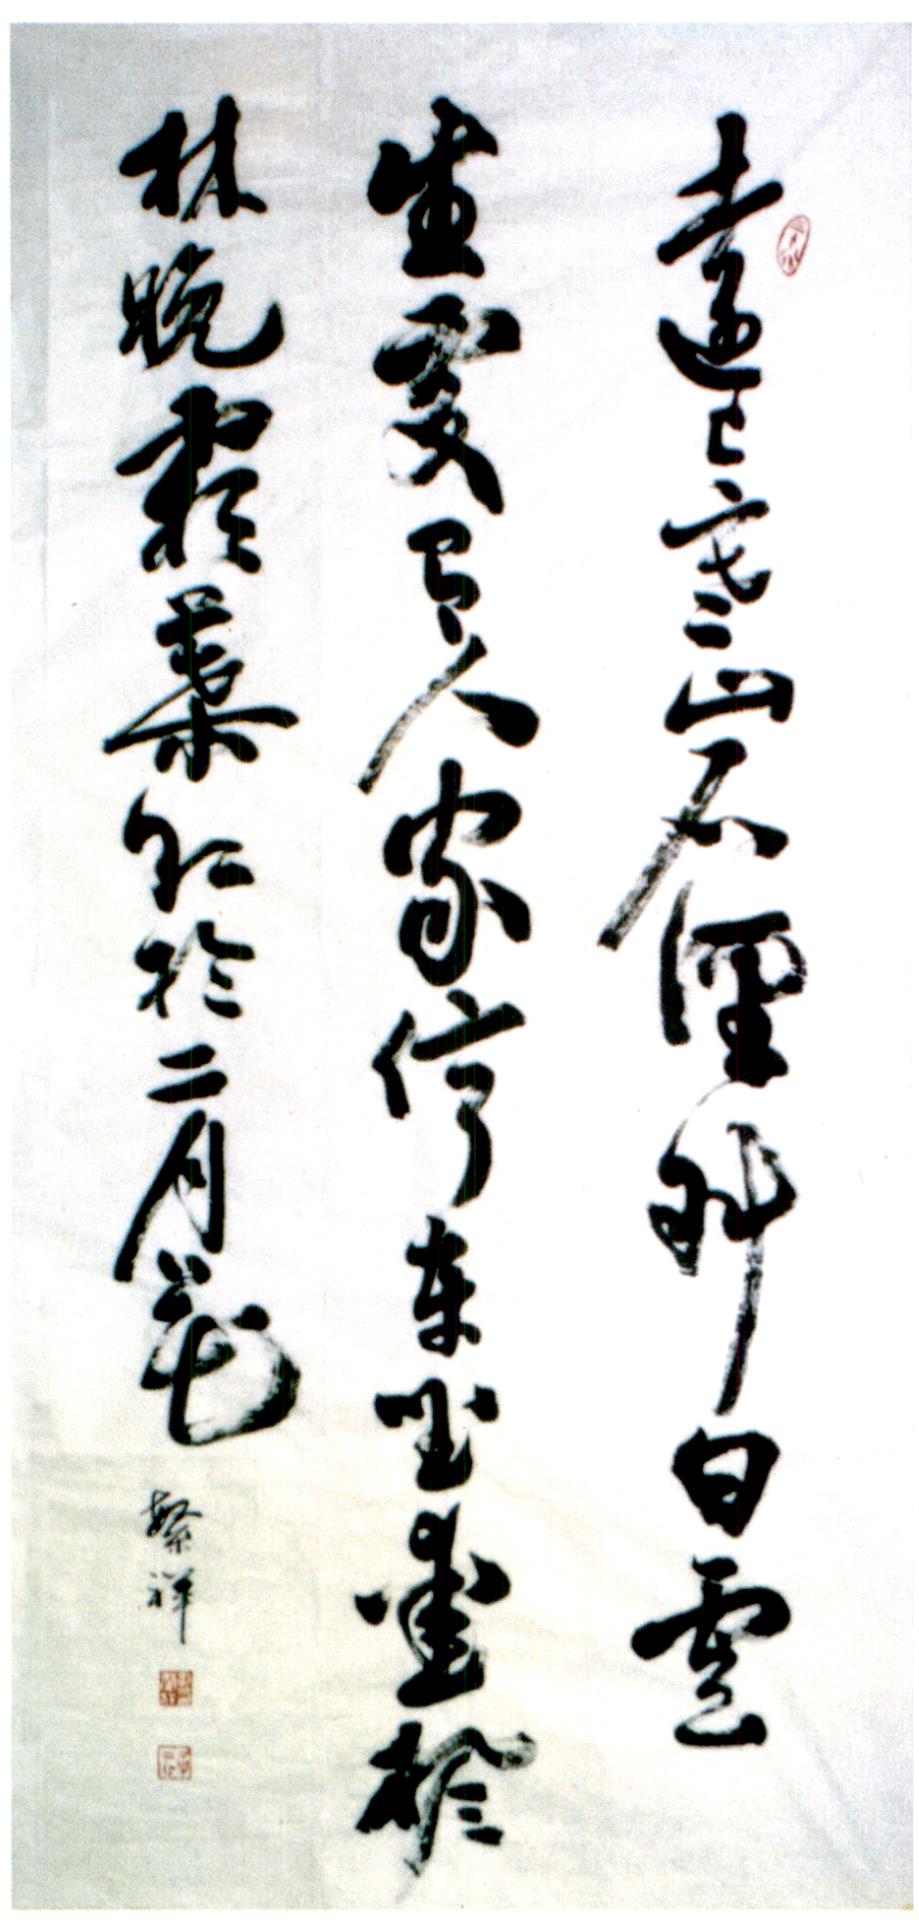 遠上寒山石徑斜白雲
生處有人家停車坐愛楓
林晚霜葉紅於二月花
繁祥